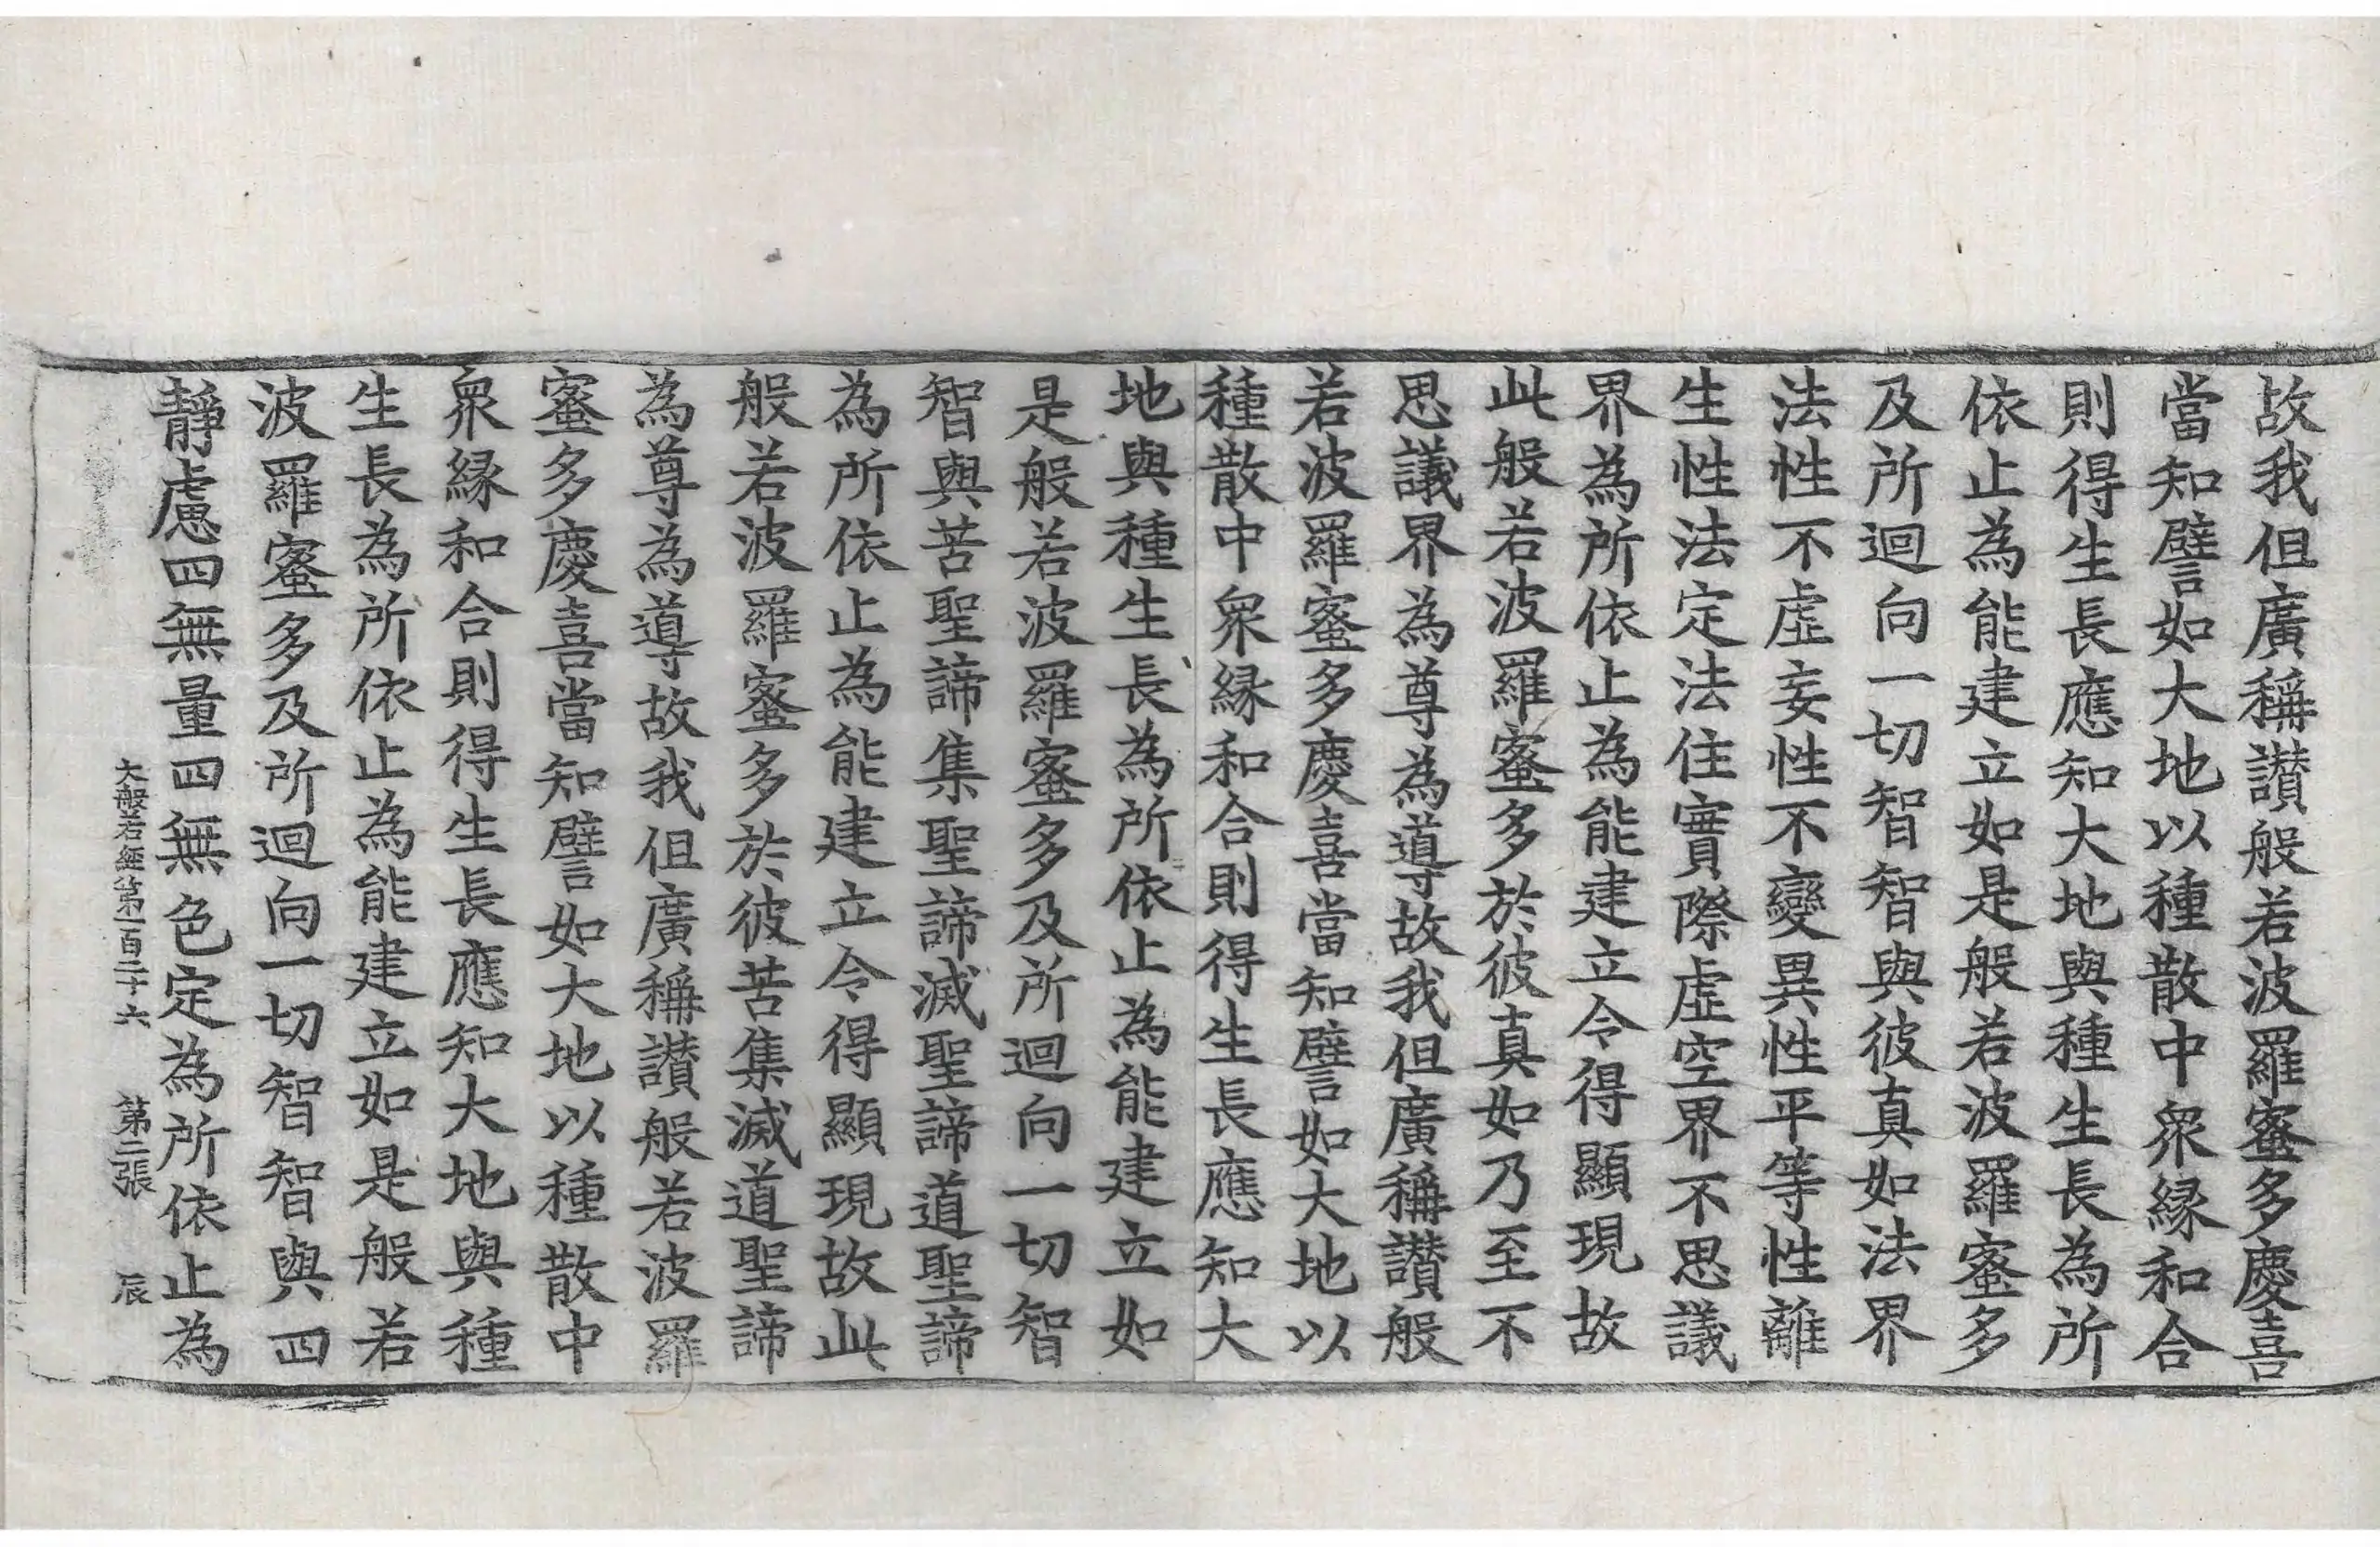 故我但廣稱讃般若波羅蜜多慶喜
當知譬如大地以種散中衆縁和合
則得生長應知大地與種生長為所
依止為能建立如是般若波羅蜜多
及所迴向一切智智與彼真如法界
法性不虛妄性不變異性平等性離
生性法定法住實際虛空界不思議
界為所依止為能建立令得顯現故
此般若波羅蜜多於彼真如乃至不
思議界為尊為導故我但廣稱讃般
若波羅蜜多慶喜當知譬如大地以
種散中衆縁和合則得生長應知大
地與種生長為所依止為能建立如
是般若波羅蜜多及所迴向一切智
智與苦聖諦集聖諦滅聖諦道聖諦
為所依止為能建立令得顯現故此
般若波羅蜜多於彼苦集滅道聖諦
為尊為導故我但廣稱讃般若波羅
蜜多慶喜當知譬如大地以種散中
衆縁和合則得生長應知大地與種
生長為所依止為能建立如是般若
波羅蜜多及所迴向一切智智與四
靜慮四無量四無色定為所依止為
大般若經第一百二十六 第二張 辰